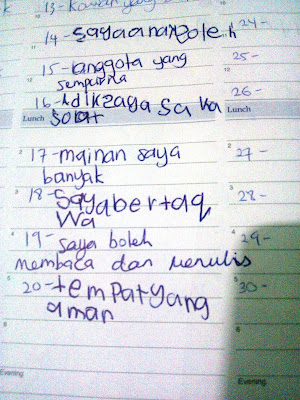 13-Kawan yang
14-Sayaanaksoleh
15-anggota yang
sempurna
16-Adiksaya Suka
Lunch Solat
17-mainan saya
banyak
18-Sayabertaq
wa
19-saya boleh
membaca dan menulis
20-tempatyang
aman
24-
25-
26-
Lunch
27-
28-
29-
30-
Evening
Evening